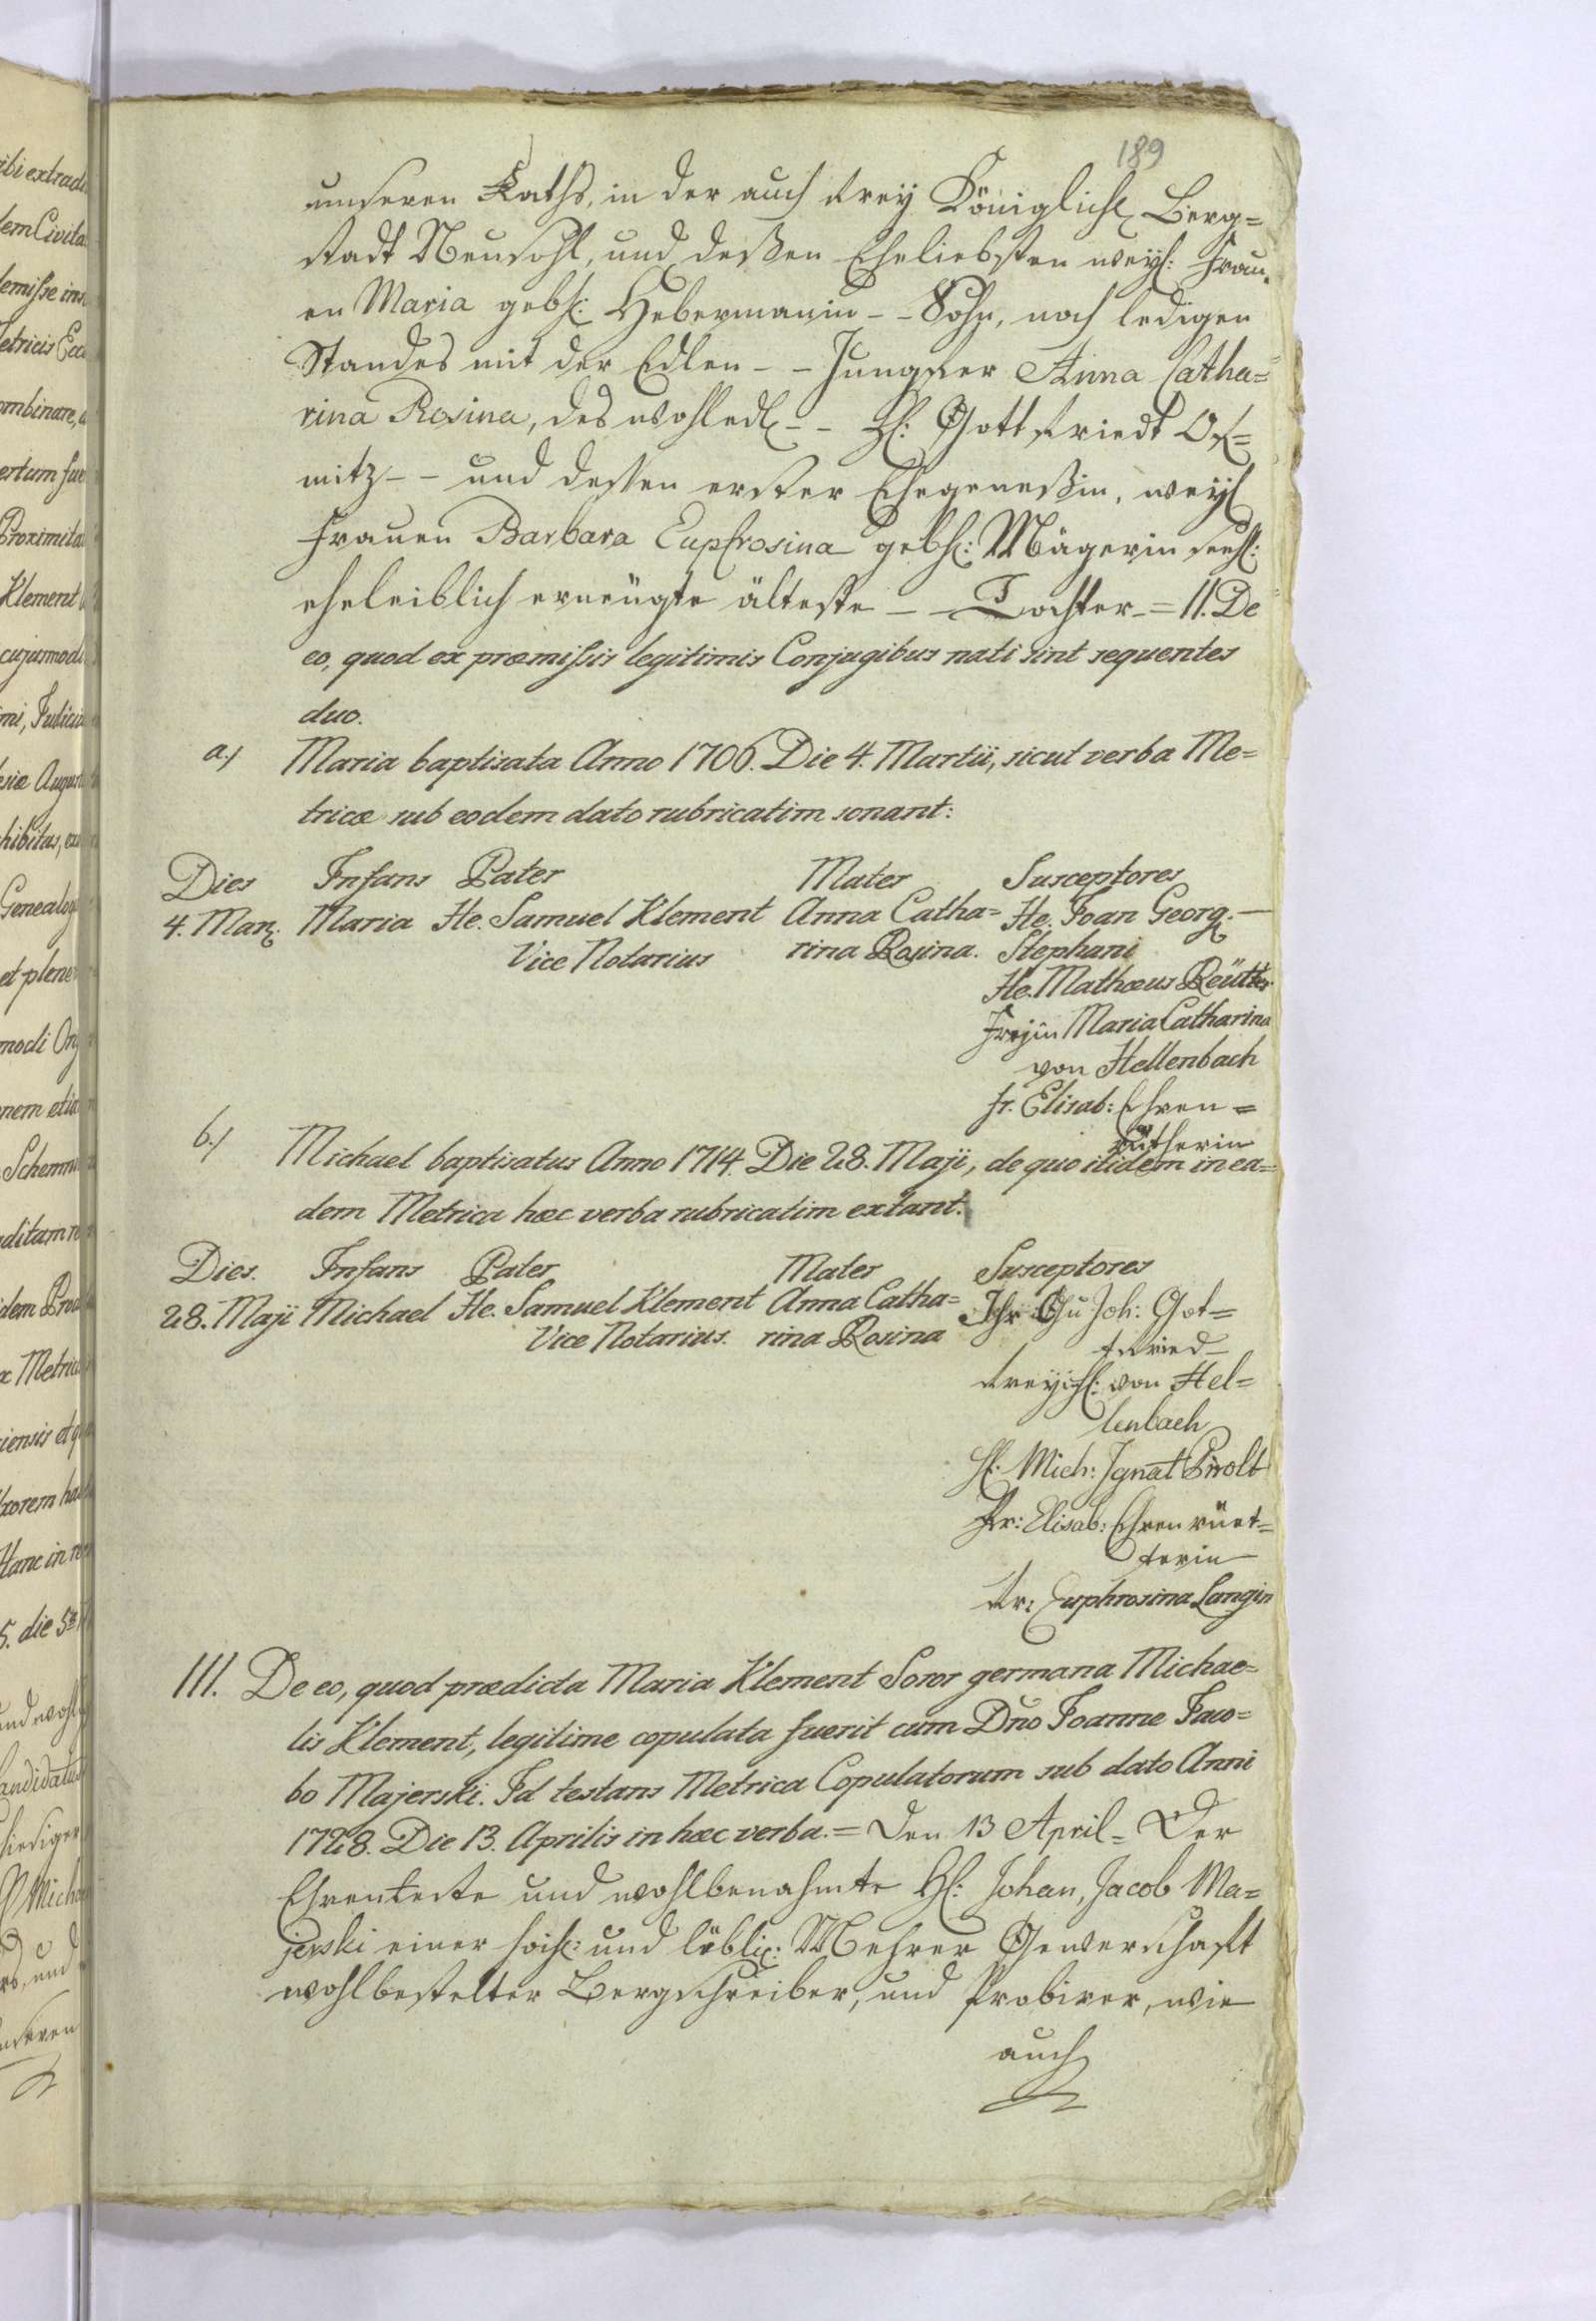 189
unseren Raths, in der auch frey Königlich Berg=
stadt Neusohl, und deßen Eheliebsten weyl: Frau=
en Maria gebh: Hebermanin - - Sohn, noch ledigen
Standes mit der Edlen - - Jungfer Anna Catha=
rina Rosina, des wohledl - - H: Gottfriedt Os=
mitz - - und dessen erster Ehegeneßin, weyl
Frauen Barbara Euphrosina gebh: Mägerin seel:
eheleiblich erzeügte älteste - - Tochter = 11. De
eo, quod ex præmissis legitimis Conjugibus nati sint sequentes
duo.
a./ Maria baptisata Anno 1706. Die 4. Martii, sicut verba Me=
tricæ sub eodem dato rubricatim sonant:
Dies Infans Pater Mater Susceptores
4. Mar. Maria He. Samuel Klement Anna Catha= He. Joan Georg. —
Vice Notarius rina Rosina. Stephani
He. Mathæus Reütter
Freyin Maria Catharina
von Hellenbach
Fr. Elisab: Ehren=
rütherin
b./ Michael baptisatus Anno 1714. Die 28. Maji, de quo itidem in ea=
dem Metrica hæc verba rubricatim extant.
Dies. Infans Pater Mater Susceptores
28. Maji Michael He. Samuel Klement Anna Catha= Ihr Gn Joh: Got=
Vice Notarius. rina Rosina fried
freyh: von Hel=
lenbach
H: Mich: Ignat Pirolt
Fr: Elisab: Ehren rüet=
terin
Fr: Euphrosina Langin
III. De eo, quod prædicta Maria Klement Soror germana Michae=
lis Klement, legitime copulata fuerit cum Dno Joanne Jaco=
bo Majerski. Id testans Metrica Copulatorum sub dato Anni
1728. Die 13. Aprilis in hæc verba. = Den 13 April = Der
Ehrenfeste und wohlbenahmte H: Johan, Jacob Ma=
jerski einer hoch: und löbli: Mehrer Gewerschaft
wohlbestelter Bergschreiber, und Probirer, wie
auch